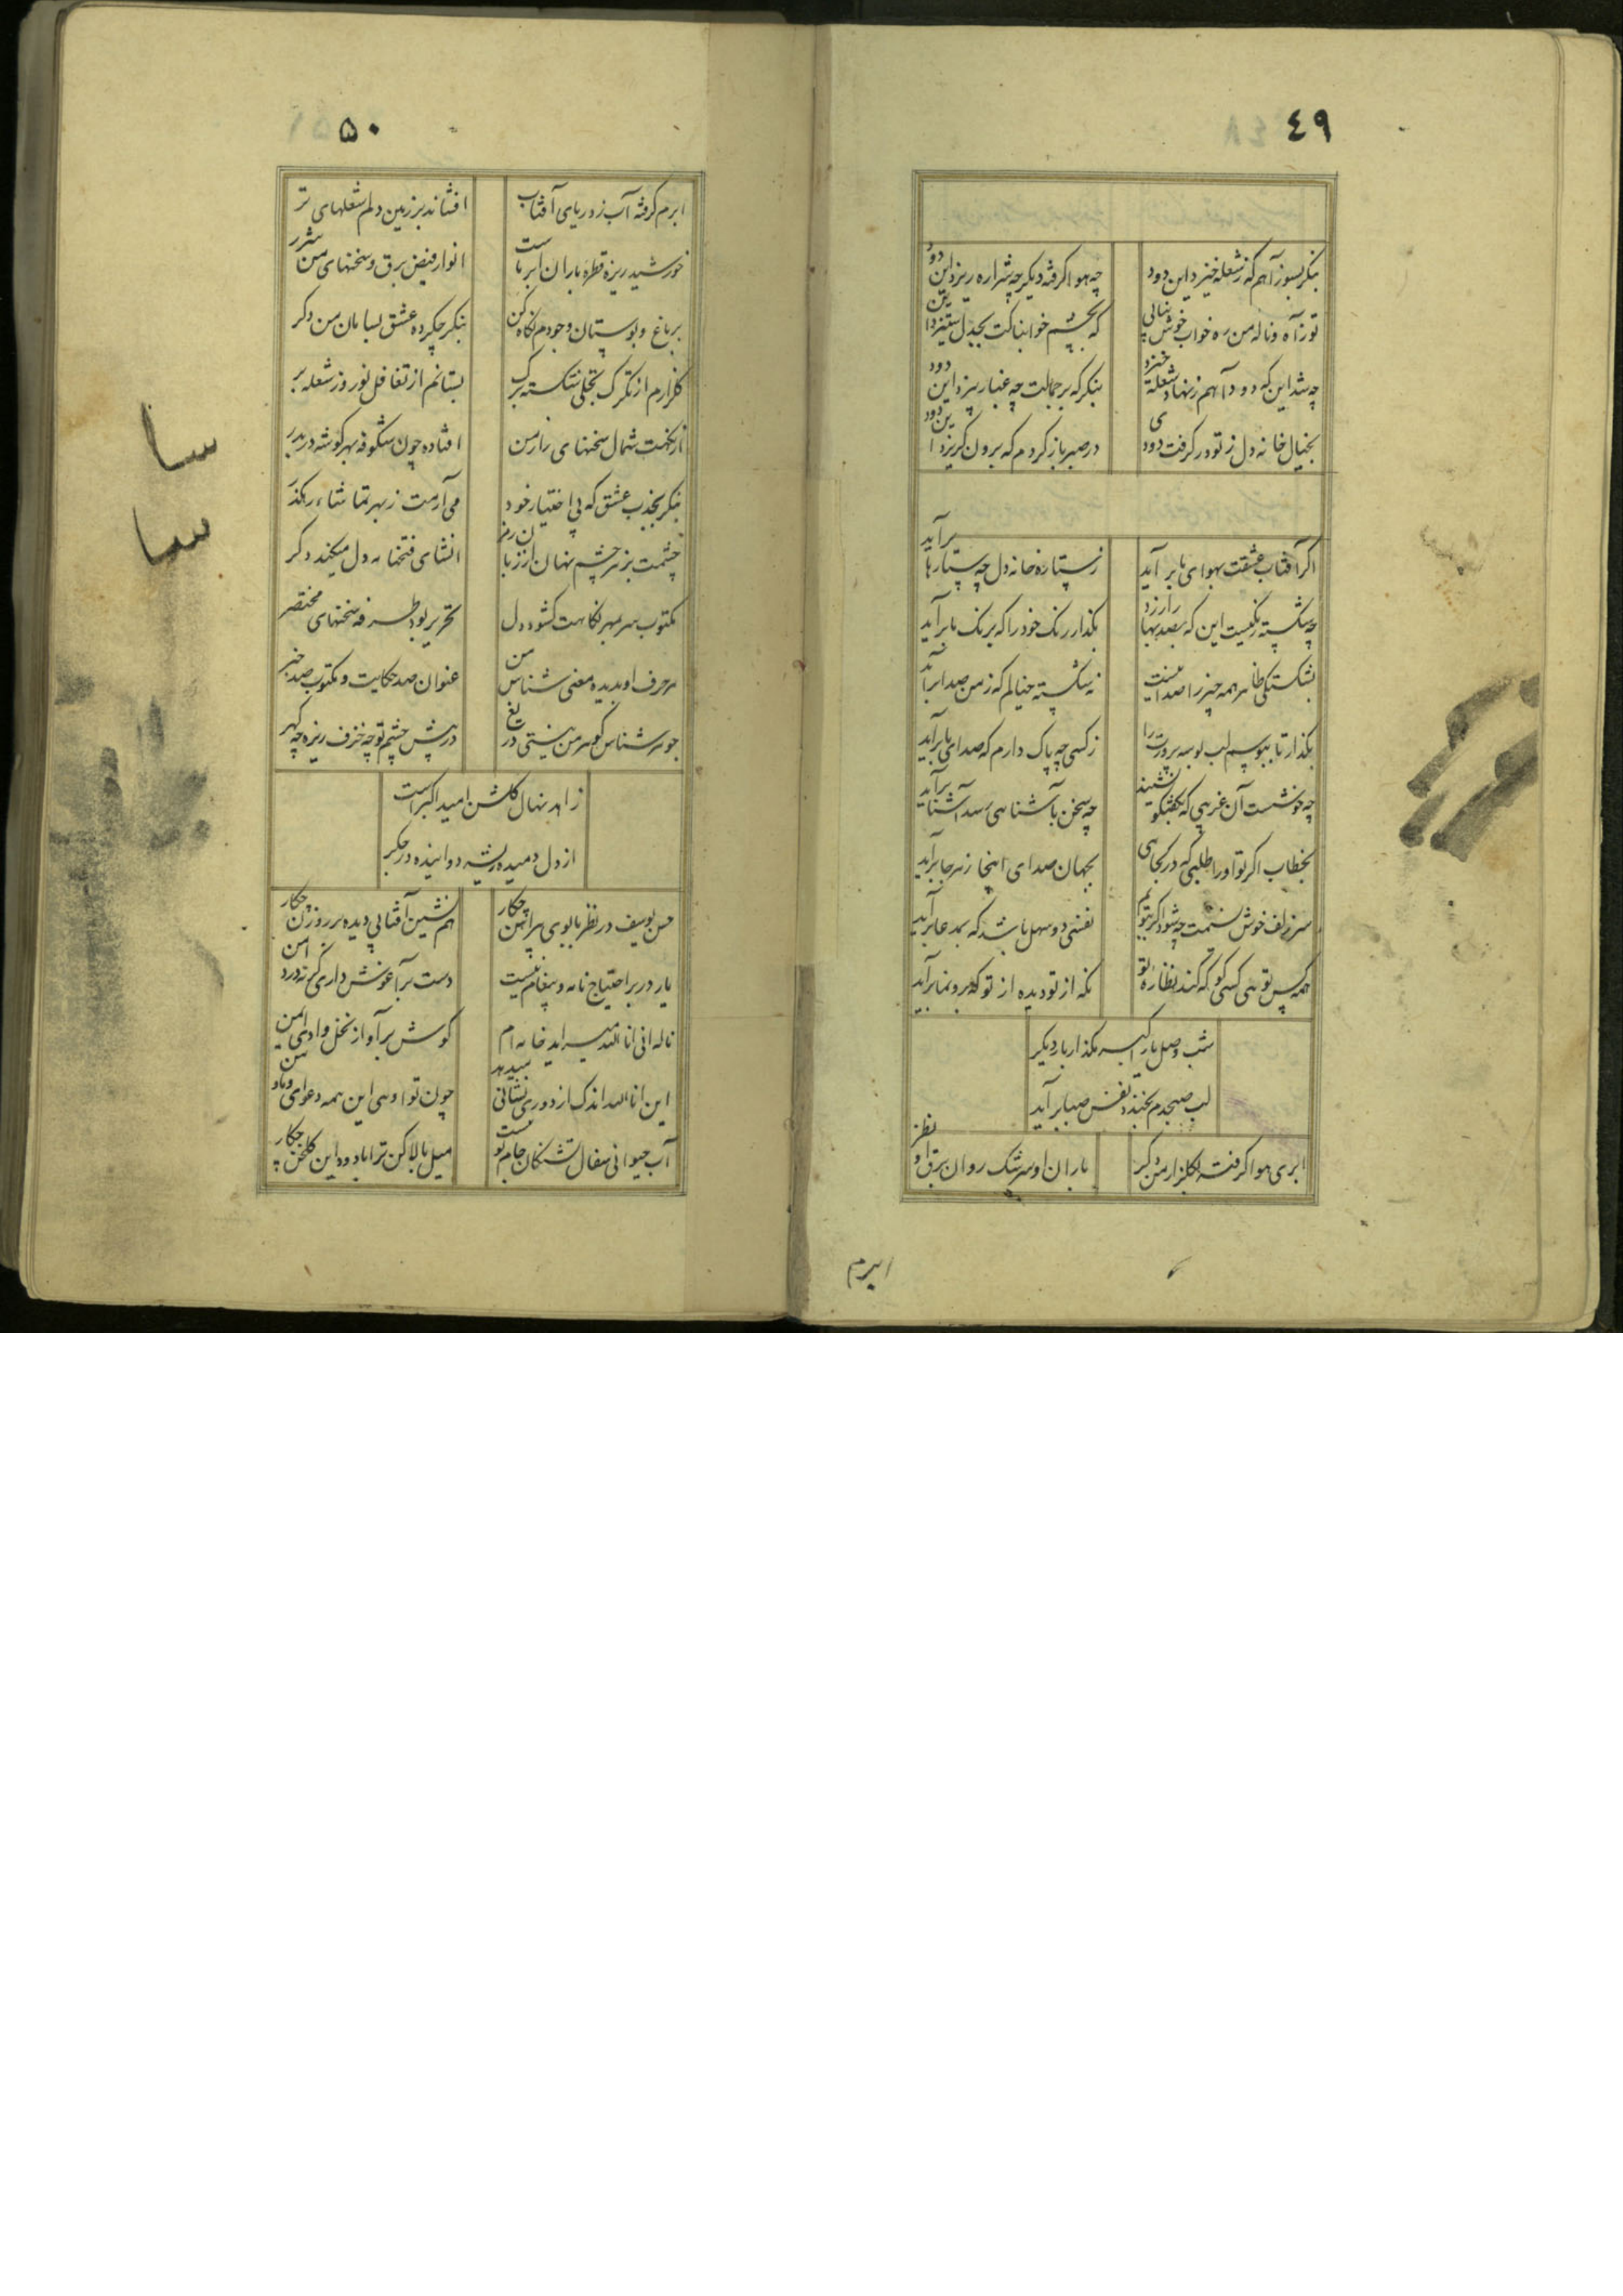 ٤٩
بنگر بسوز آهم که ز شعله خیزد این دود
چه هوا گرفته دیگر چه شراره ریزد این دود
تو ز آه و ناله من ره خواب خوش
که بچشم خوابناکت بجدل ستیزد این
چه شد این که دود آهم ز نهاد شعله خیزد
بنگر که بر جمالت چه غبار بیزد این دود
بخیال خانه دل ز تو در گرفت دودی
در صبر باز کردم که برون گریزد این دود
اگر آفتاب عشقت بهوای ما بر آید
ز ستاره خانه دل چه ستارها بر آید
چه شکسته رنگیست این که بصد بها
بگذار رنگ خود را که برنگ ما بر آید
بشکستگی ظاهر همه چیز را صدائیست
نه شکسته خیالم که ز من صدا بر آید
بگذار تا ببوسم لب
ز کسی چه باک دارم که صدای ما بر آید
چه خوشست آن غریبی که بگفتگو نشیند
چه سخن بآشنایی رسد آشنا بر آید
بخطاب اگر تو او را طلبی که در کجایی
بجهان صدای اینجا ز هر جا بر آید
سر زلف خوش نسیمت چه شود اگر ببویم
نفسی دو سهل باشد که بمدعا بر آید
همه کس تویی کسی کو که کند نظاره تو
نگه از تو دیده از تو که برونما بر آید
شب وصل یار اکبر مگذار بار دیگر
لب صبحدم بخندد نفس صبا بر آید
ابری هوا گرفته بگلزار من دگر
باران او سرشک روان برق او نظر
ابرم
٥٠
ابرم گرفته آب ز دریای آفتاب
افشاند بر زمین دلم شعلهای تر
خورشید ریزه قطره باران ابر ماست
انوار فیض برق و سخنهای من شرر
بر باغ و بوستان وجودم نگاه کن
بنگر چکرده عشق بسامان من دگر
گلزارم از تگرگ تجلی شکسته برگ
بستانم از تغافل نوروز شعله بر
از نکهت شمال سخنهای راز من
افتاده چون شکوفه بهر گوشه در بدر
بنگر بجذب عشق که بی اختیار خود
می آرمت ز بهر تماشاء رهگذر
چشمت برمز چشم نهان از زبان
انشای فتحنامه دل میکند دگر
مکتوب سر بمهر نگاهت گشود دل
تحریر بود طرفه سخنهای مختصر
هر حرف او بدیده معنی شناس من
عنوان صد حکایت و مکتوب صد خبر
جوهر شناس گوهر من نیستی دریغ
در پیش چشم تو چه خزف ریزه چه گهر
زاهد نهال گلشن امید اکبر است
از دل دمیده ریشه دوانیده در جگر
حسن یوسف در نظر با بوی پیراهن چکار
هم نشین آفتابی دیده بر روزن چکار
یار در بر احتیاج نامه و پیغام نیست
دست بر آغوش داری
ناله انی انا الله میسراید خانه ام
گوش بر آواز نخل وادی ایمن
این انا الله اندک از دوری نشانی میدهد
چون تو اویی این همه دعوای
آب حیوانی سفال تشنگان جام تو نیست
میل بالا کن ترا با دود این گلخن چکار